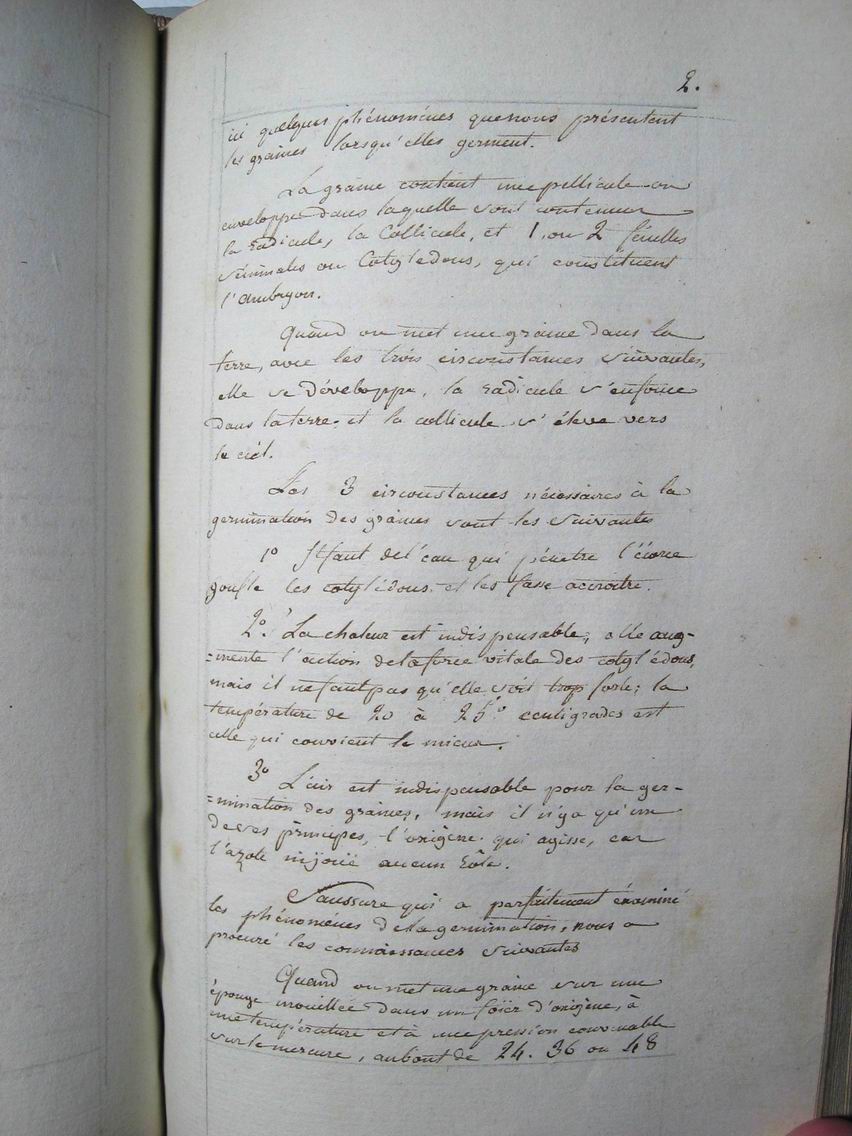 2.
ici quelques phénomènes que nous présentent
les graines lorsqu'elles germent.
La graine contient une pellicule ou
enveloppe dans laquelle sont contenues
la radicule, la Collicule, et 1 ou 2 feuilles
séminales ou Cotyledons, qui constituent
l'ambryon.
Quand on met une graine dans la
terre, avec les trois circonstances suivantes,
elle se développe, la radicule s'enfonce
dans la terre et la collicule s'éleve vers
le ciel.
Les 3 circonstances nécessaires à la
germination des graines sont les suivantes
1º Il faut de l'eau qui pénetre l'écorce
gonfle les cotylédons et les fasse accroitre.
2º. La chaleur est indispensable, elle aug-
=mente l'action de la force vitale des cotylédons,
mais il ne faut pas qu'elle soit trop forte; la
température de 20 à 25º centigrades est
celle qui convient le mieux.
3º L'air est indispensable pour la ger-
=mination des graines, mais il n'y a qu'un
de ses principes, l'oxigène qui agisse, car
l'azote n'y joue aucun rôle.
Saussure qui a parfaitement examiné
les phénomènes de la germination, nous a
procuré les connaissances suivantes
Quand on met une graine sur une
éponge mouillée dans un d'oxigène, à
une température et à une pression convenable
sur le mercure, au bout de 24. 36 ou 48